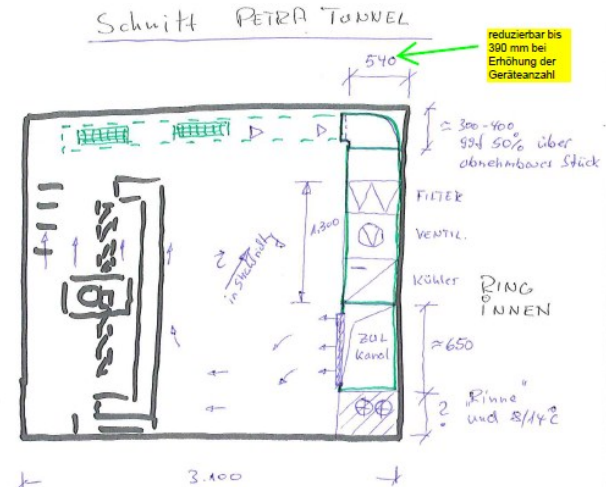 Schnitt PETRA TUNNEL
reduzierbar bis
390 mm bei
Erhöhung der
Geräteanzahl
540
≈ 300-400
ggf 50% über
abnehmbares Stück
FILTER
1.300
VENTIL.
in Strahrichtg
Kühler
RING
INNEN
ZUL
Kanal
≈650
?
"Rinne"
und 8/14°C
3.100